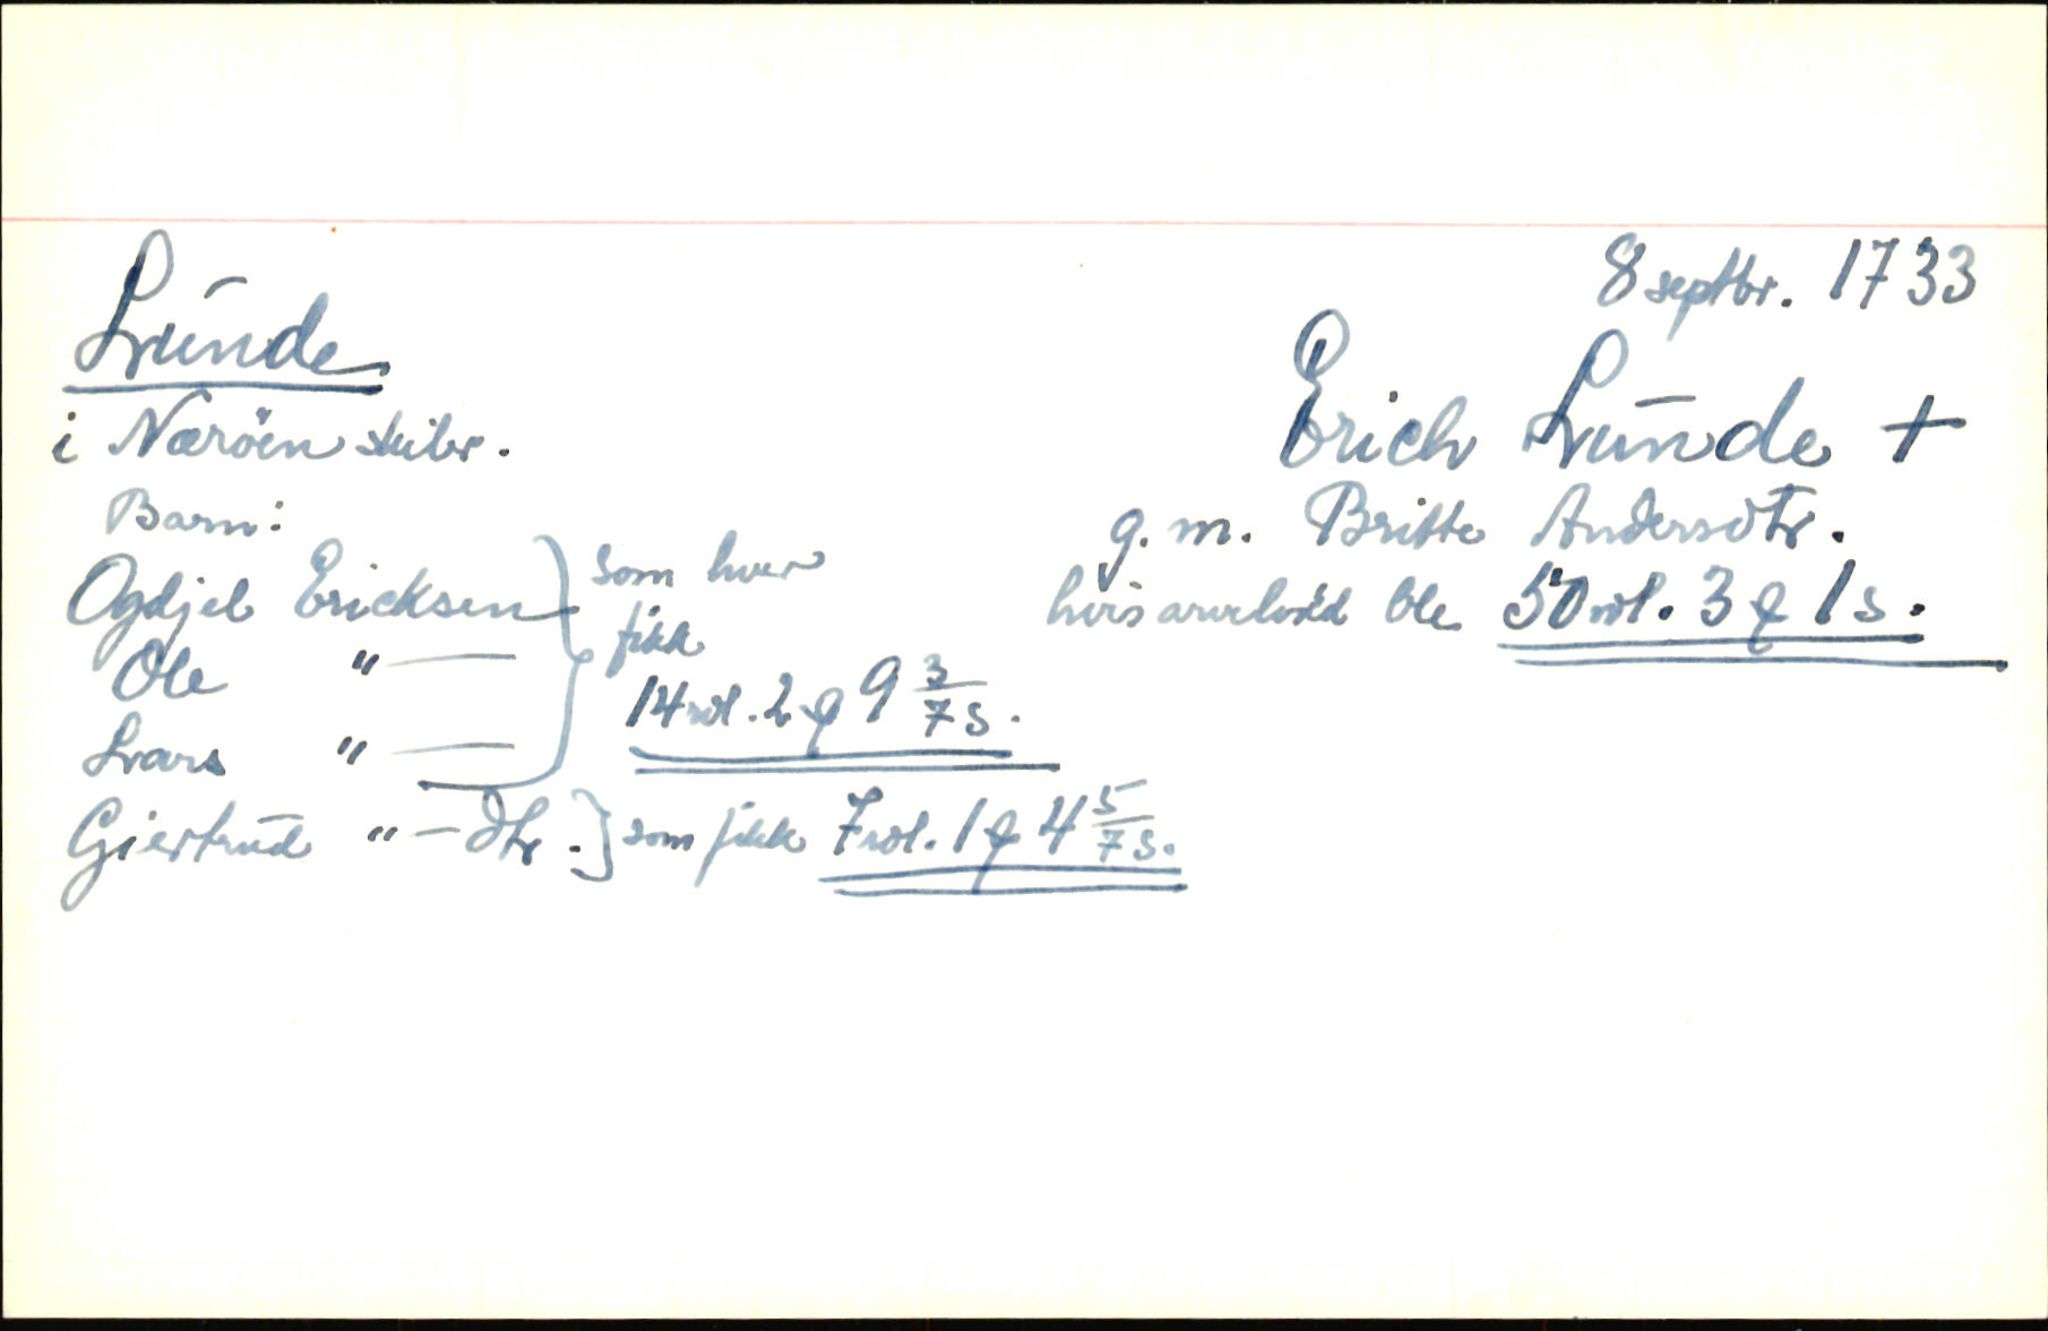 8 septbr. 1733
Lunde
i Nærøen skibr.
Erich Lunde +
g. m. Britte Andersdtr.
hvis arvelodd ble 50 rdl. 3 ϙ 1 s.
Barn:
Ogdjel Ericksen } som hver
Ole " — fikk
Lars " — 14 rdl. 2 ϙ 9 3/7 s.
Giertrud " — dtr. } som fikk 7 rdl. 1 ϙ 4 5/7 s.